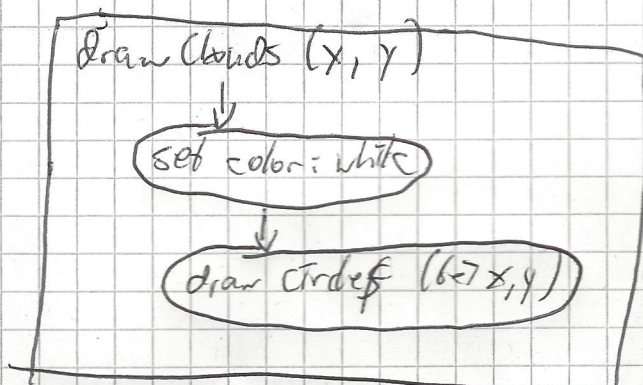 draw Clouds (x, y)
set color: white
draw Circles ( x, y)